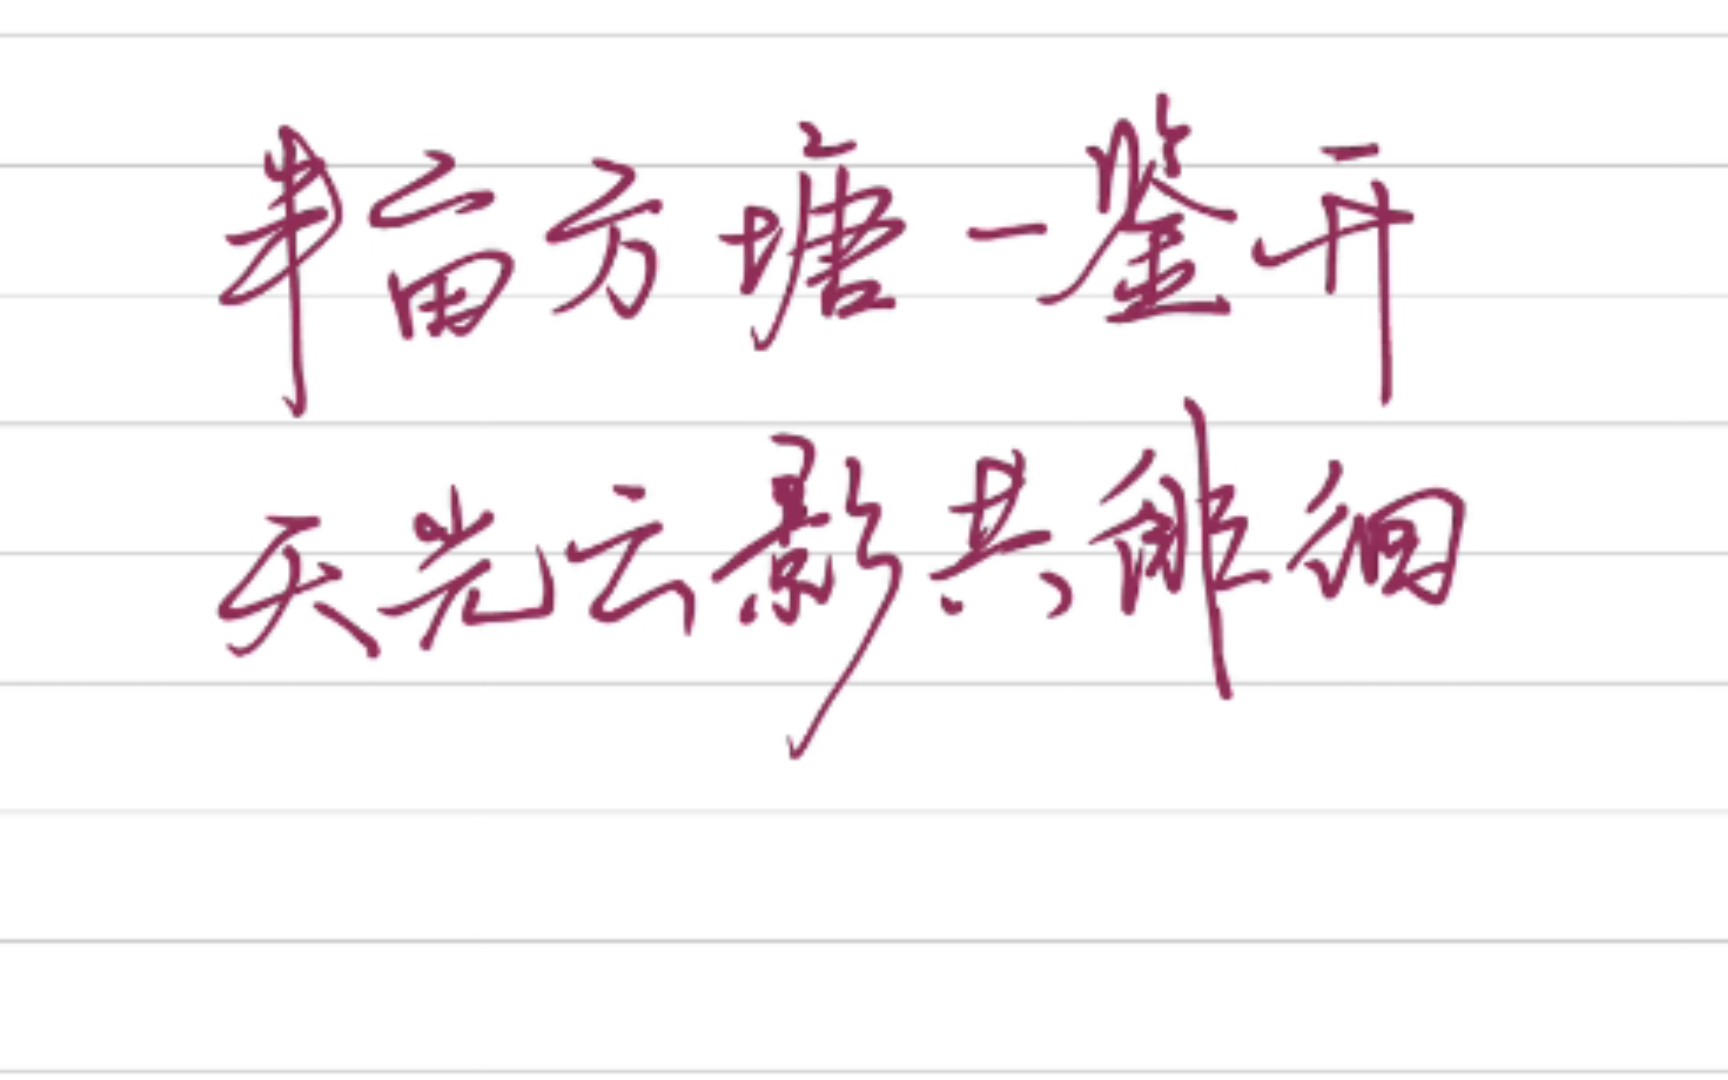 半亩方塘一鉴开
天光云影共徘徊